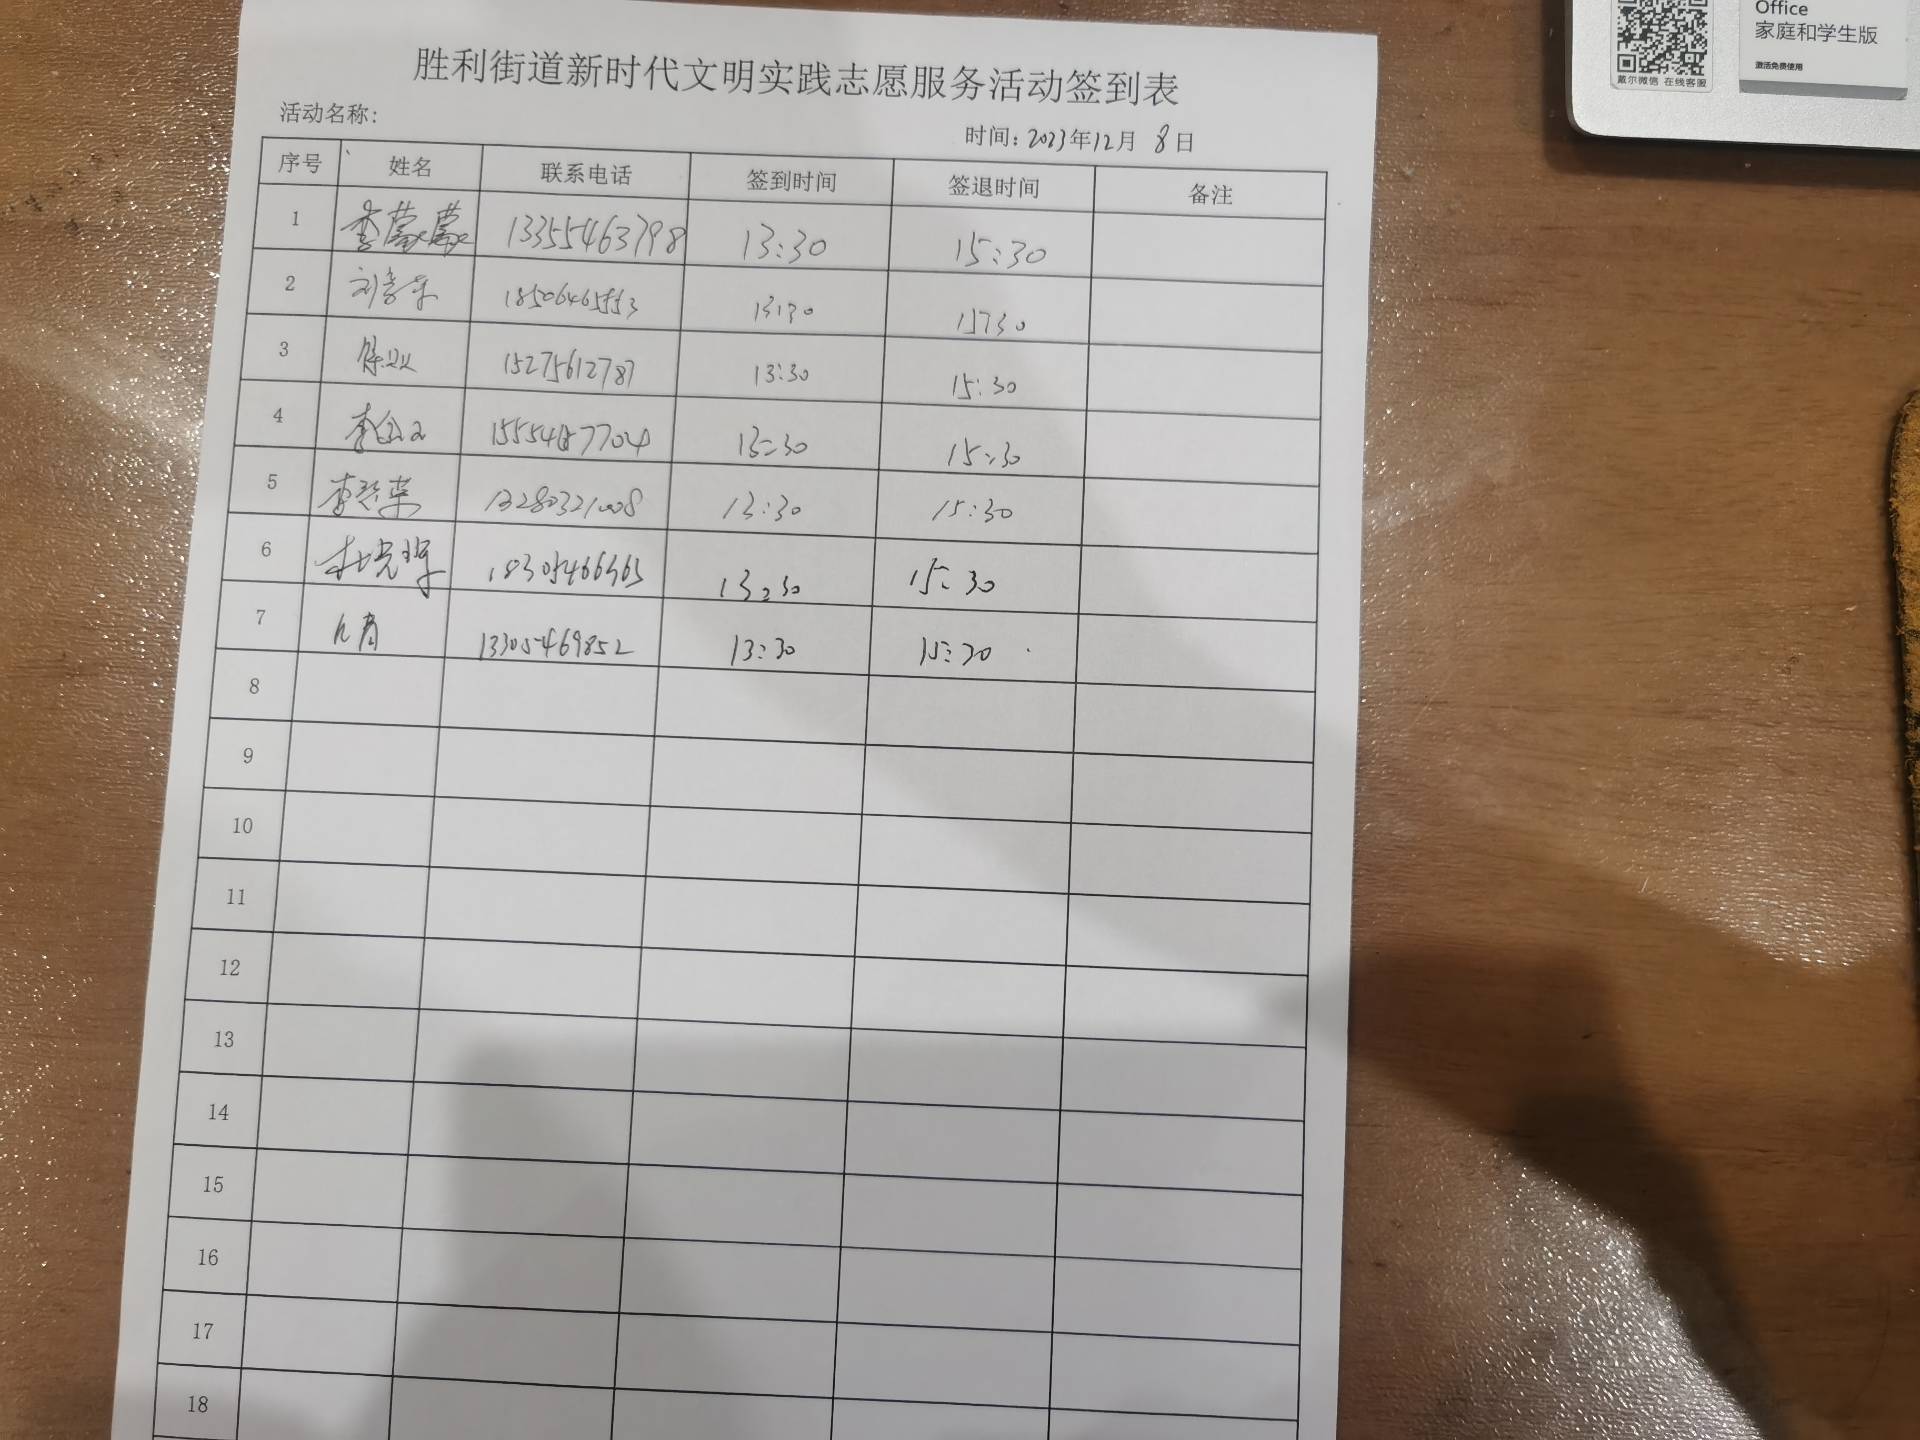 Office
家庭和学生版
激活免费使用
戴尔微信 在线客服
胜利街道新时代文明实践志愿服务活动签到表
活动名称：
时间：2023年12月 8日
序号 姓名 联系电话 签到时间 签退时间 备注
1 李蒙蒙 13355463798 13:30 15:30
2 18506465553 13:30 15:30
3 15275612787 13:30 15:30
4 13:30 15:30
5 13280321008 13:30 15:30
6 杜光辉 13:30 15:30
7 13305469852 13:30 15:30
8
9
10
11
12
13
14
15
16
17
18